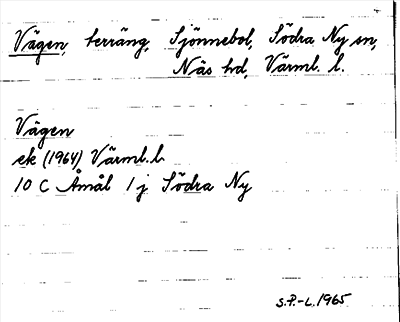 Vägen, terräng, Sjönnebol, Södra Ny sn,
Näs hd, Värml. l.
Vägen
ek (1964) Värml. l.
10 C Åmål 1 j Södra Ny
S.P.-L. 1965